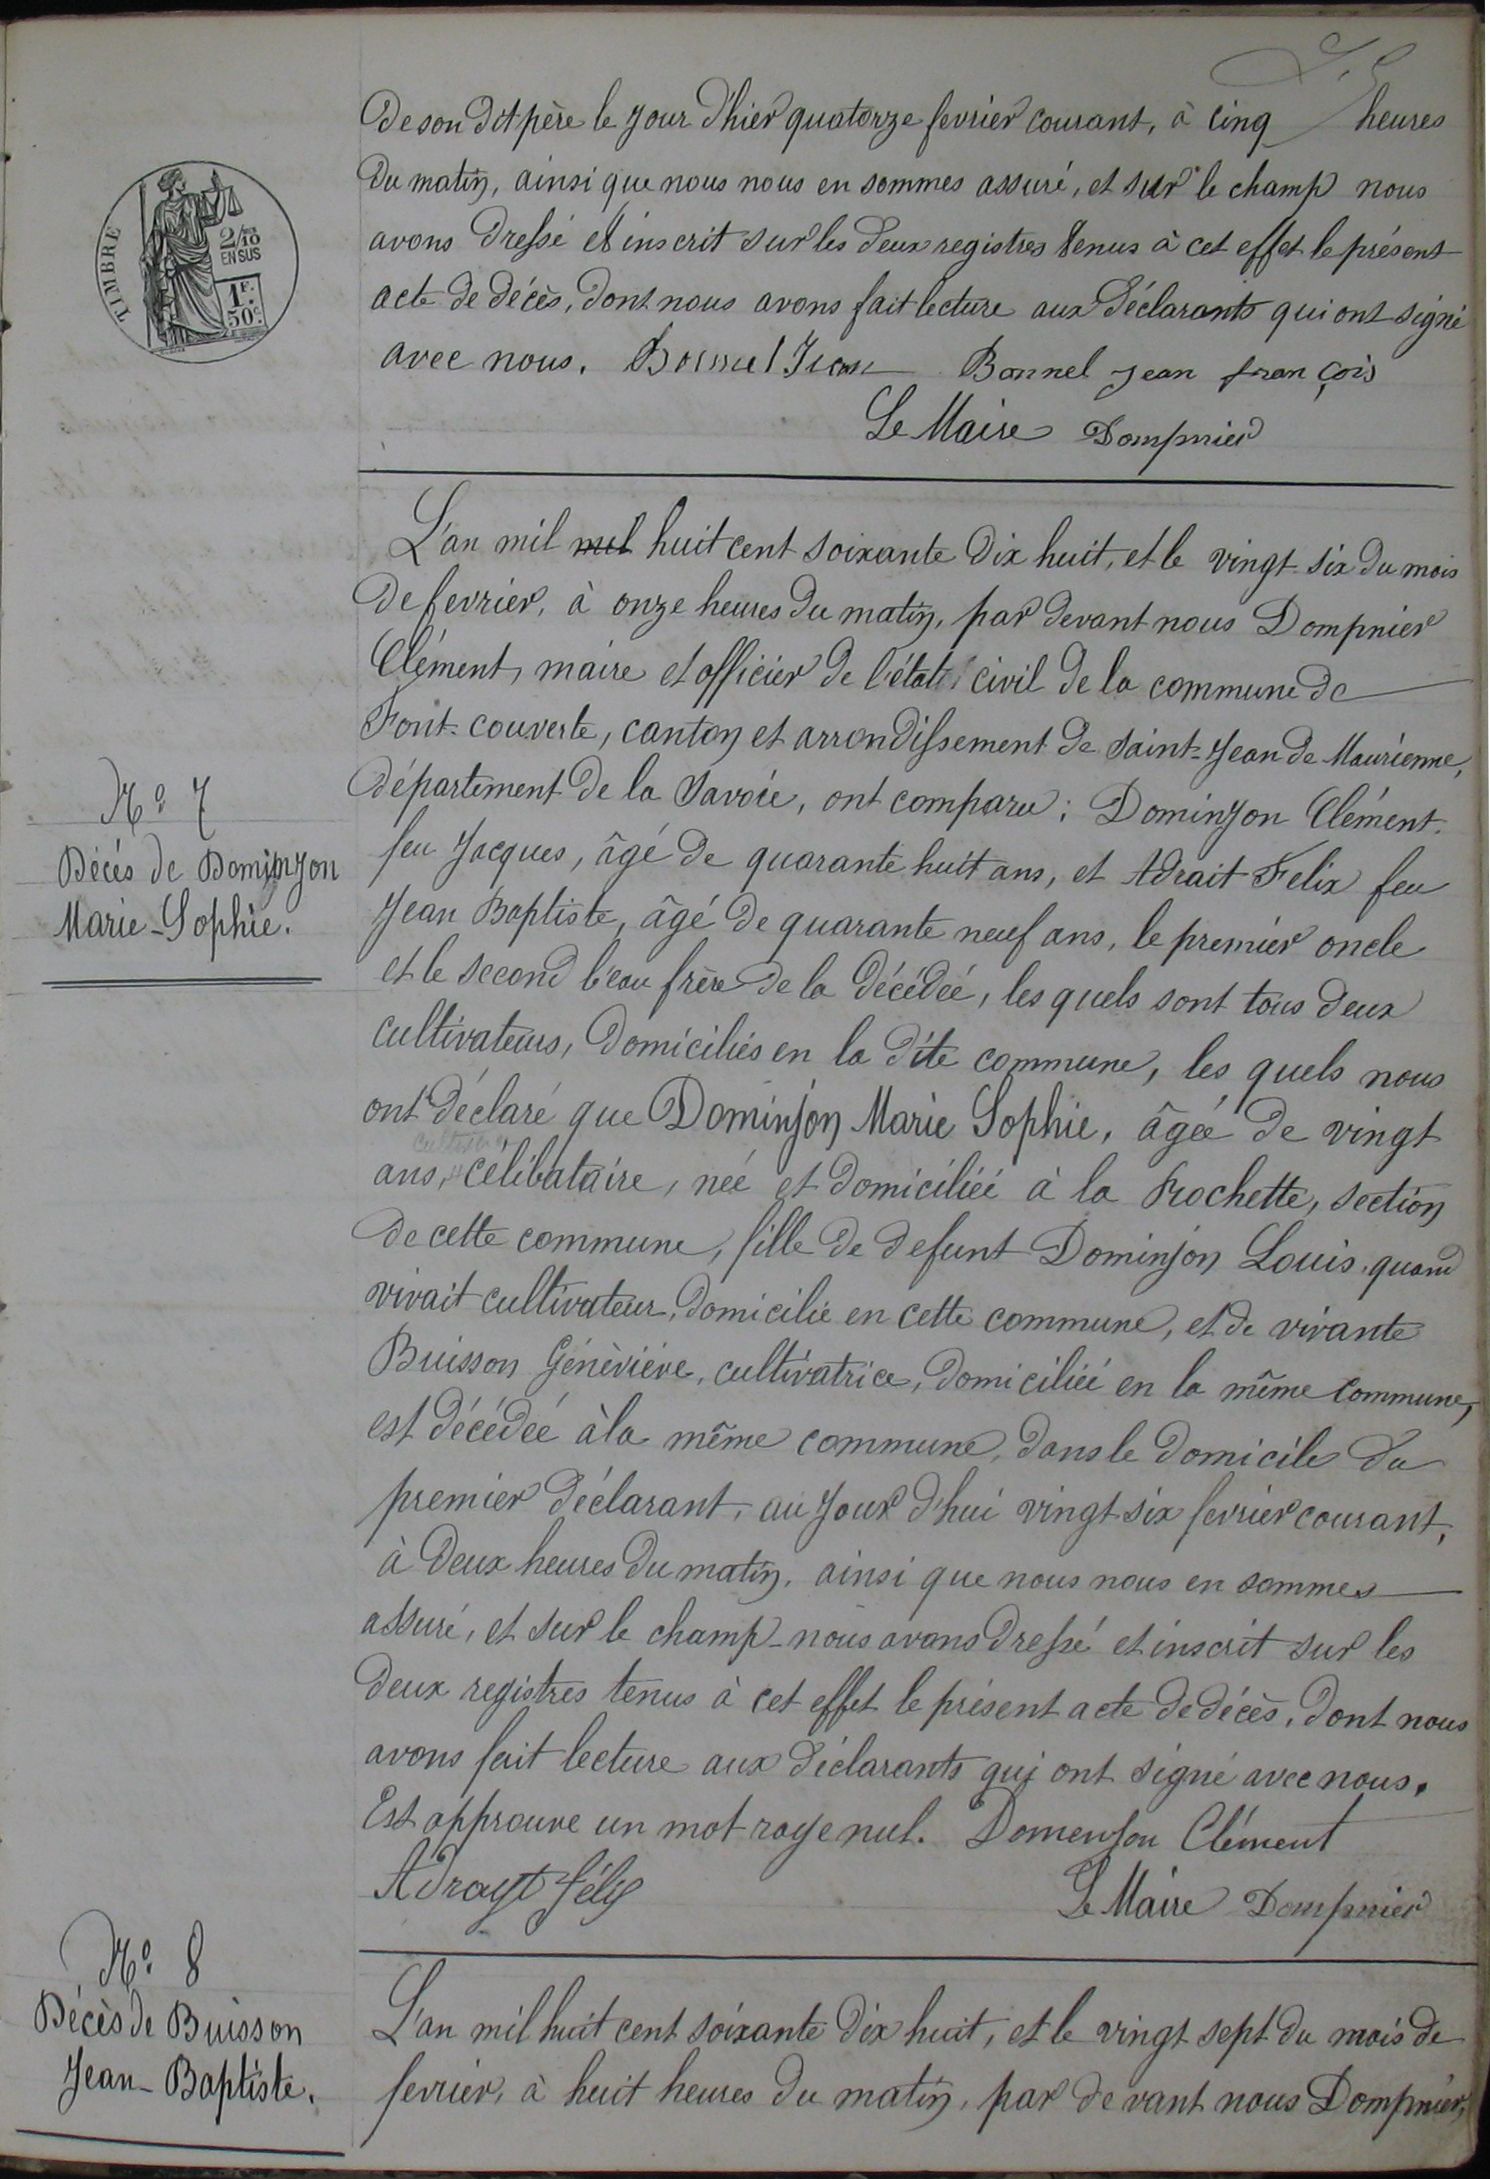 De son dit père le jour d'hier quatorze fevrier courant, à cinq heures
du matin, ainsi que nous nous en sommes assuré, et sur le champ nous
avons dressé et inscrit sur les deux registres tenus à cet effet le présent
acte de décès, dont nous avons fait lecture aux déclarants qui ont signé
avec nous. Bonnel Jean Bonnel Jean François
Le Maire Dompnier
TIMBRE
2/10
EN SUS
1F.
50c.
N° 7
Décès de Dominjon
Marie-Sophie.
L'an mil mil huit cent soixante dix huit, et le vingt-six du mois
de fevrier, à onze heures du matin, par devant nous Dompnier
Clément, maire et officier de l'état civil de la commune de
Font-couverte, canton et arrondissement de Saint-Jean de Maurienne,
département de la Savoie, ont comparu : Dominjon Clément
feu Jacques, âgé de quarante huit ans, et Adrait Felix feu
Jean Baptiste, âgé de quarante neuf ans, le premier oncle
et le second beau frère de la décédée, les quels sont tous deux
cultivateurs, domiciliés en la dite commune, les quels nous
ont déclaré que Dominjon Marie Sophie, âgée de vingt
ans, célibataire, née et domiciliée à la Rochette, section
de cette commune, fille de defunt Dominjon Louis, quand
vivait cultivateur, domicilié en cette commune, et de vivante
Buisson Génèviève, cultivatrice, domiciliée en la même commune,
est décédée à la même commune, dans le domicile du
premier déclarant, au jour d'hui vingt six fevrier courant,
à deux heures du matin, ainsi que nous nous en sommes
assuré, et sur le champ nous avons dressé et inscrit sur les
deux registres tenus à cet effet le présent acte de décès, dont nous
avons fait lecture aux déclarants qui ont signé avec nous.
Est approuvé un mot rayé nul. Domenjon Clément
Adrayt félix
Le Maire Dompnier
N° 8
Décès de Buisson
Jean-Baptiste.
L'an mil huit cent soixante dix huit, et le vingt sept du mois de
fevrier, à huit heures du matin, par devant nous Dompnier,